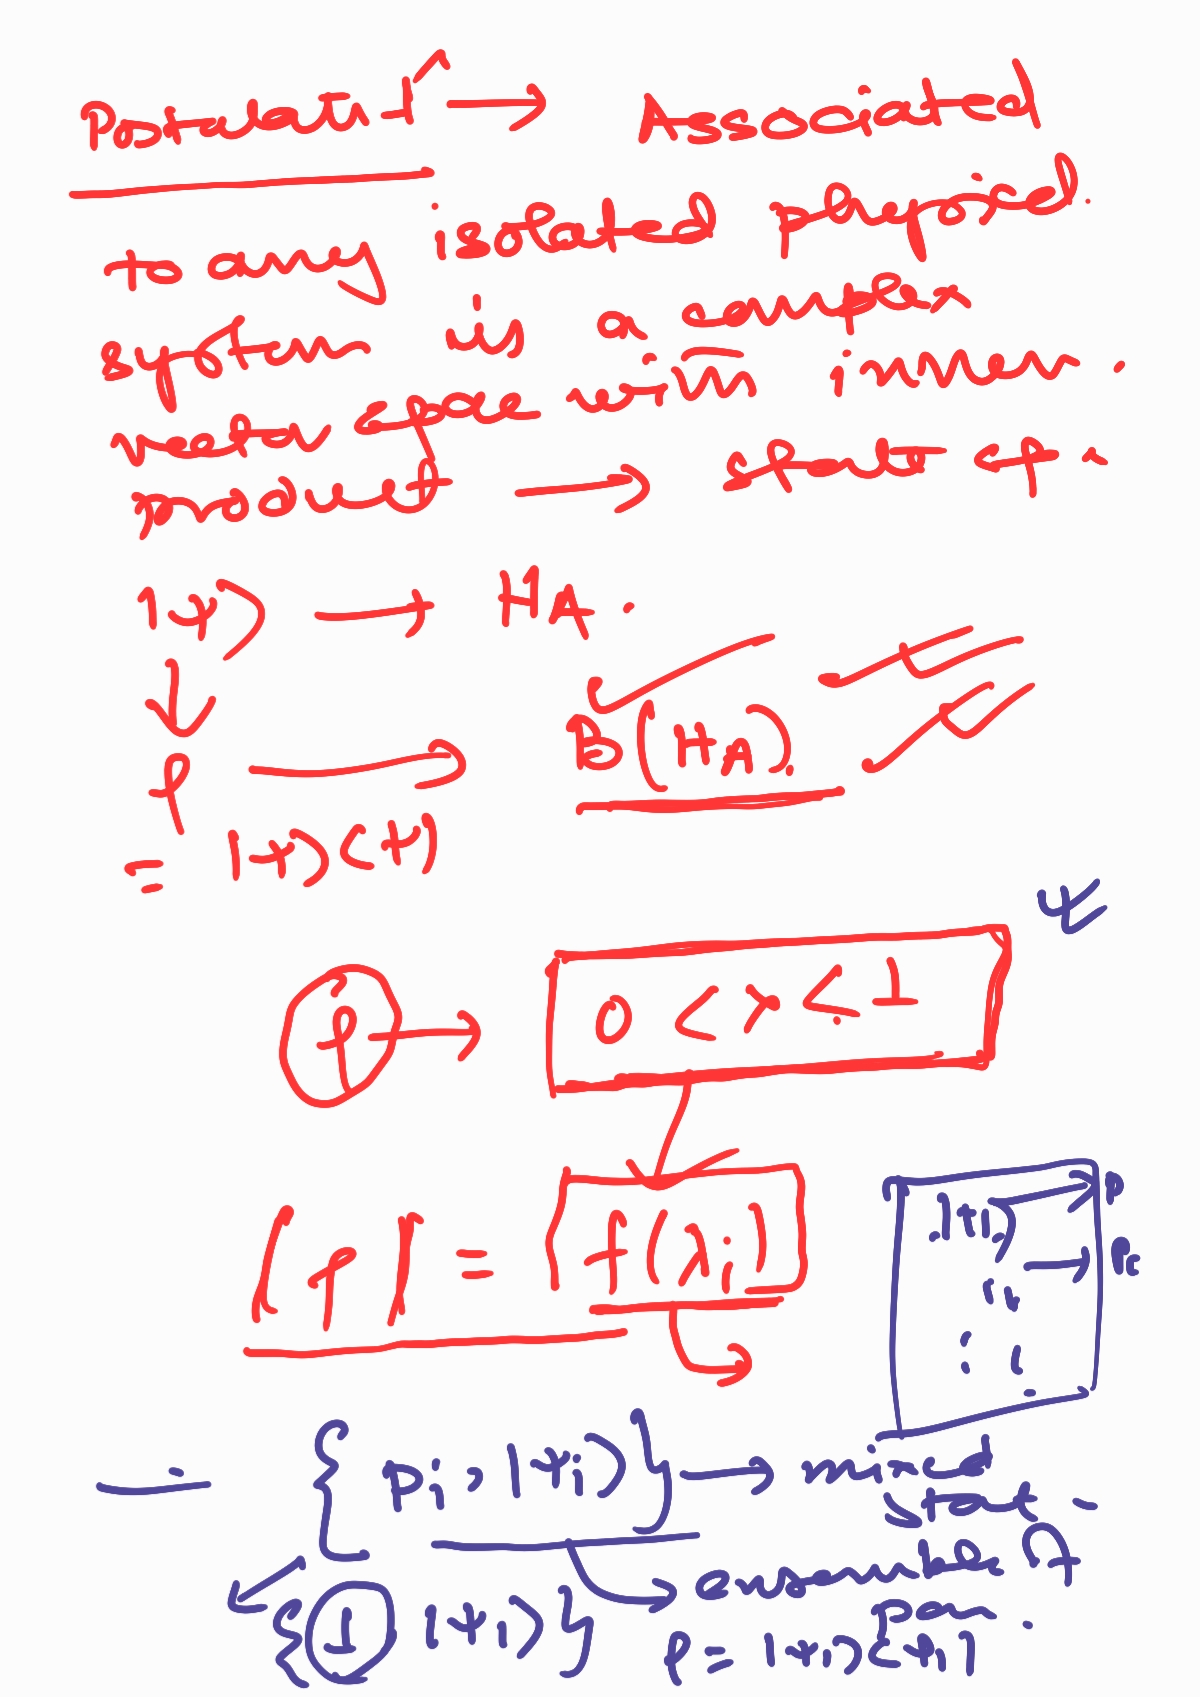 Postulate 1 → Associated
to any isolated physical
system is a complex
vector space with inner
product → state sp.
|ψ⟩ → H_A.
↓
ρ → B(H_A).
= |ψ⟩⟨ψ|
ψ
ρ → 0 < x < 1
|ρ| = f(λi)
|ψ1⟩ → p
→ p
{pi, |ψi⟩} → mixed
state
→ ensemble of
{1 |ψ1⟩}
ρ = |ψ1⟩⟨ψ1|